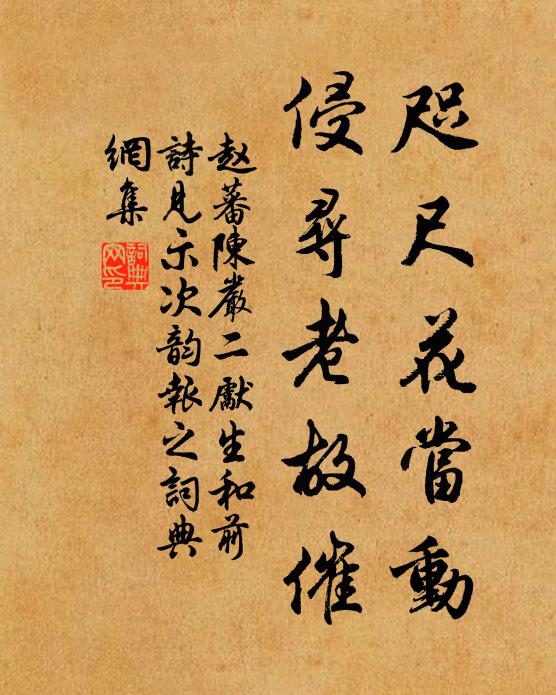 咫尺花當動
侵尋老故催
赵蕃陳嚴二獻生和前
詩見示次韵報之詞典
網集
詞典網印